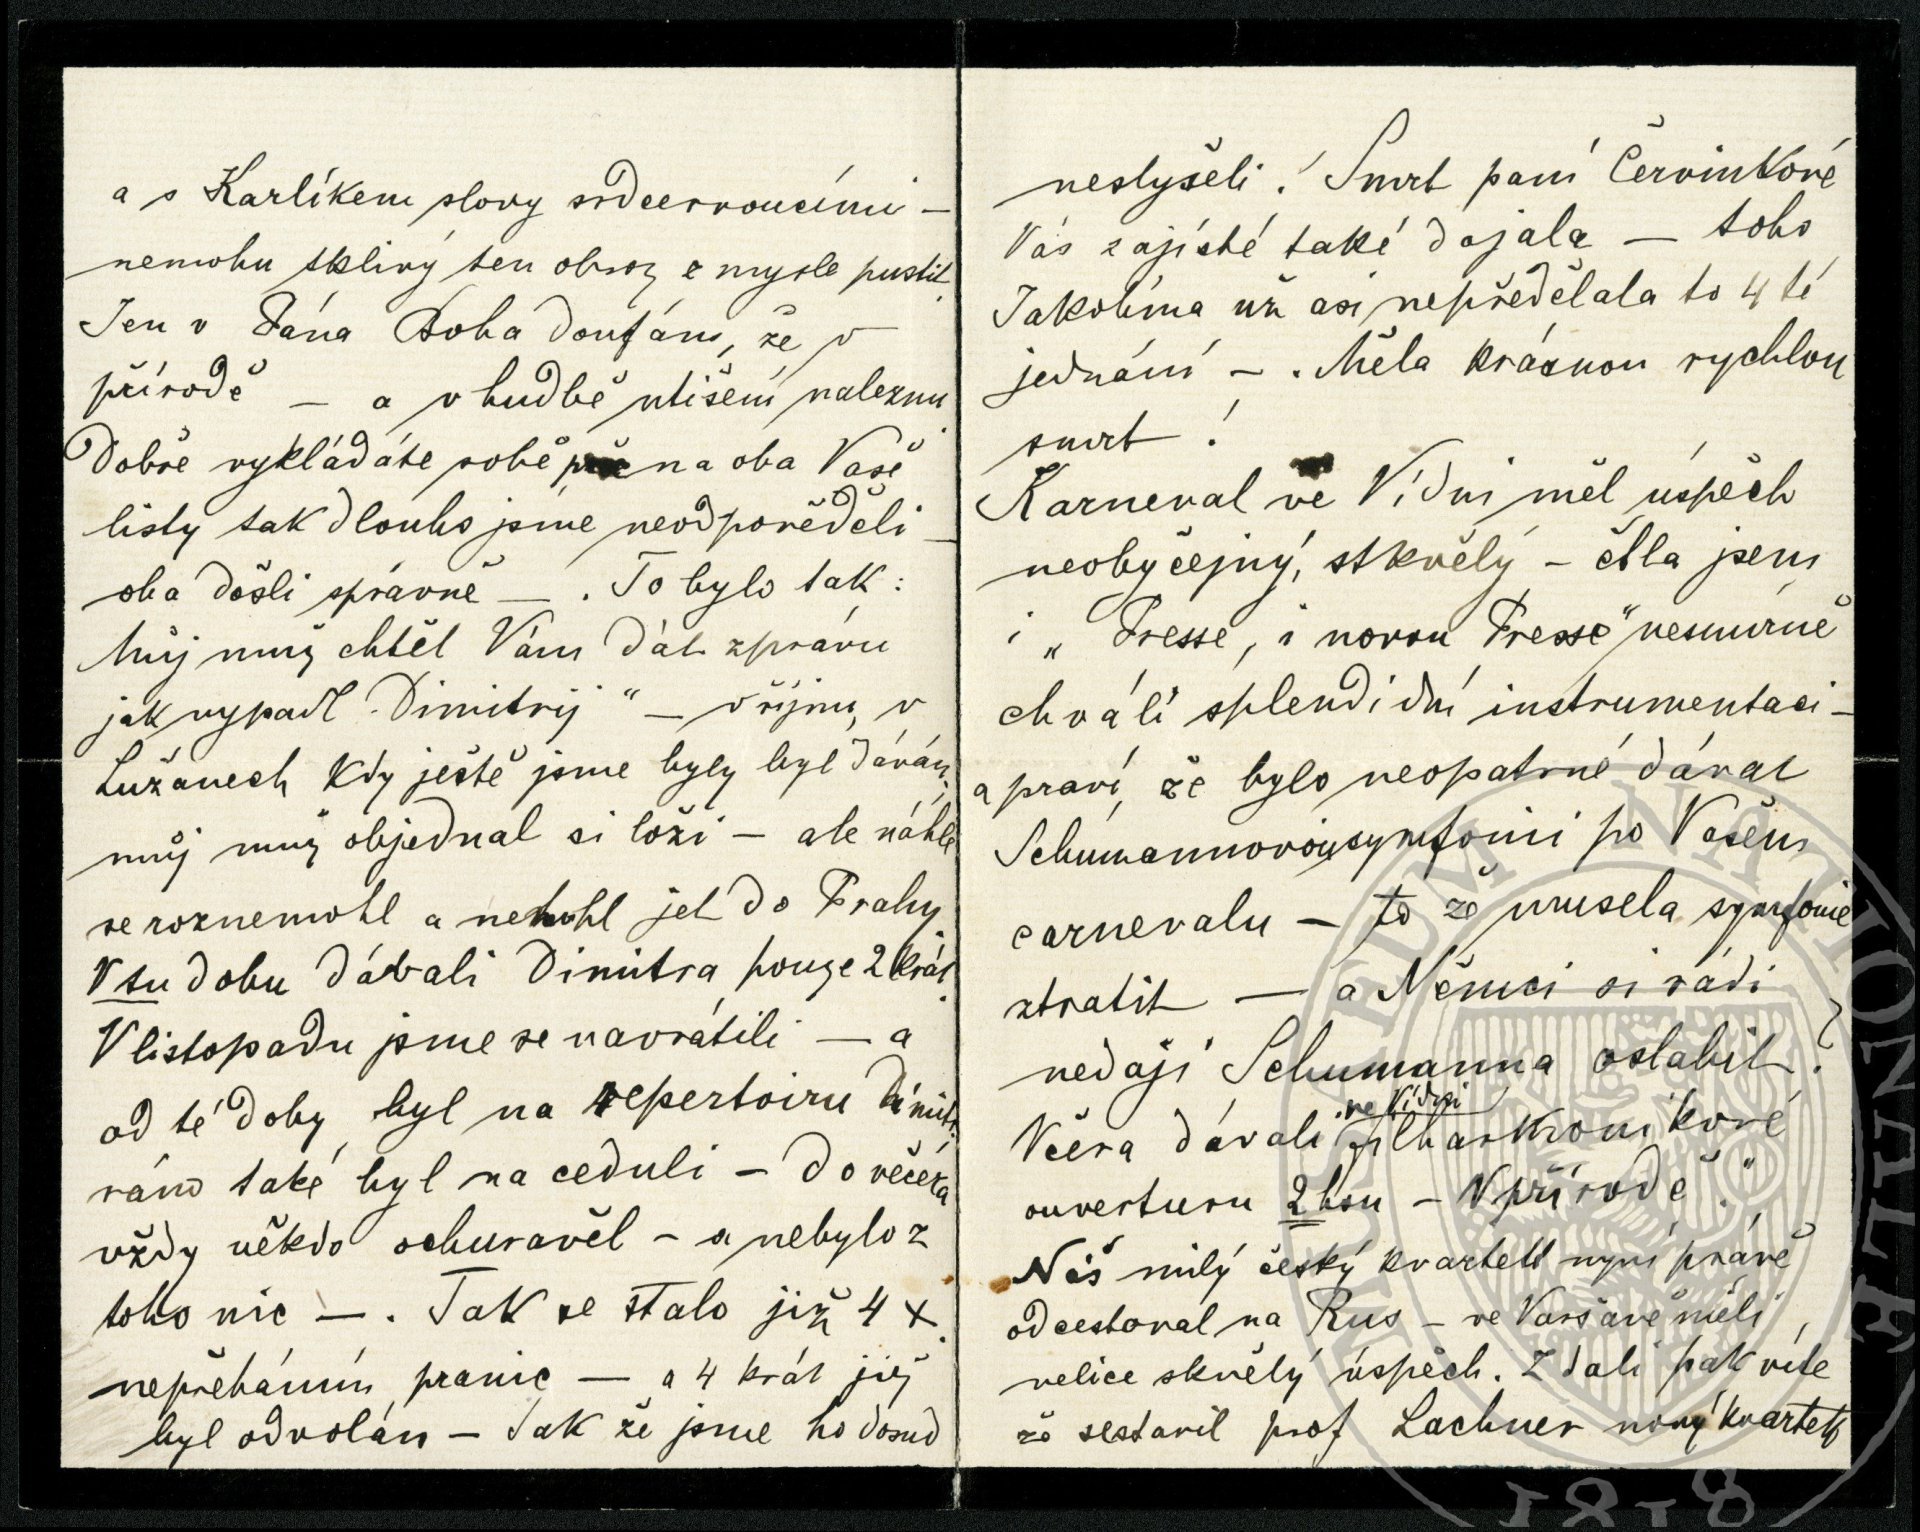 a s Karlíkem slovy srdcervoucími –
nemohu tklivý ten obraz z mysle pustit.
Jen v Pána Boha doufám, že v
přírodě – a v hudbě utišení naleznu.
Dobře vykládáte sobě na oba Vaše
listy tak dlouho jsme neodpověděli –
oba došli správně – . To bylo tak:
Můj muž chtěl Vám dát zprávu
jak vypadl „Dimitrij“ – v říjnu, v
Lužanech kdy ještě jsme byly byl dáván,
můj muž objednal si loži – ale náhle
se roznemohl a nemohl jet do Prahy.
V tu dobu dávali Dimitra pouze 2 krát.
V listopadu jsme se navrátili – a
od té doby byl na repertoiru Dimitr.
ráno také byl na ceduli – do večera
vždy někdo ochuravěl – a nebylo z
toho nic – . Tak se stalo již 4 x.
nepřeháním pranic – a 4 krát již
byl odvolán – tak že jsme ho dosud
neslyšeli! Smrt paní Červinkové
Vás zajisté také dojala – toho
Jakobína už asi nepředělala to 4 té
jednání – . Měla krásnou rychlou
smrt!
Karneval ve Vídni měl úspěch
neobyčejný, stkvělý – četla jsem
i „Presse, i novou Presse“ nesmírně
chválí splendidní instrumentaci –
a praví, že bylo neopatrné dávat
Schumannovou symfonii po Vašem
carnevalu – to že musela symfonie
ztratit – a Němci si rádi
nedají Schumanna oslabit!
ve Vídni
Včera dávali filharmonikové
ouverturu 2hou – V přírodě“.
Náš milý český kvartett nyní právě
odcestoval na Rus – ve Varšavě měli
velice skvělý úspěch. Zdali pak víte
že sestavil prof Lachner nový kvartett